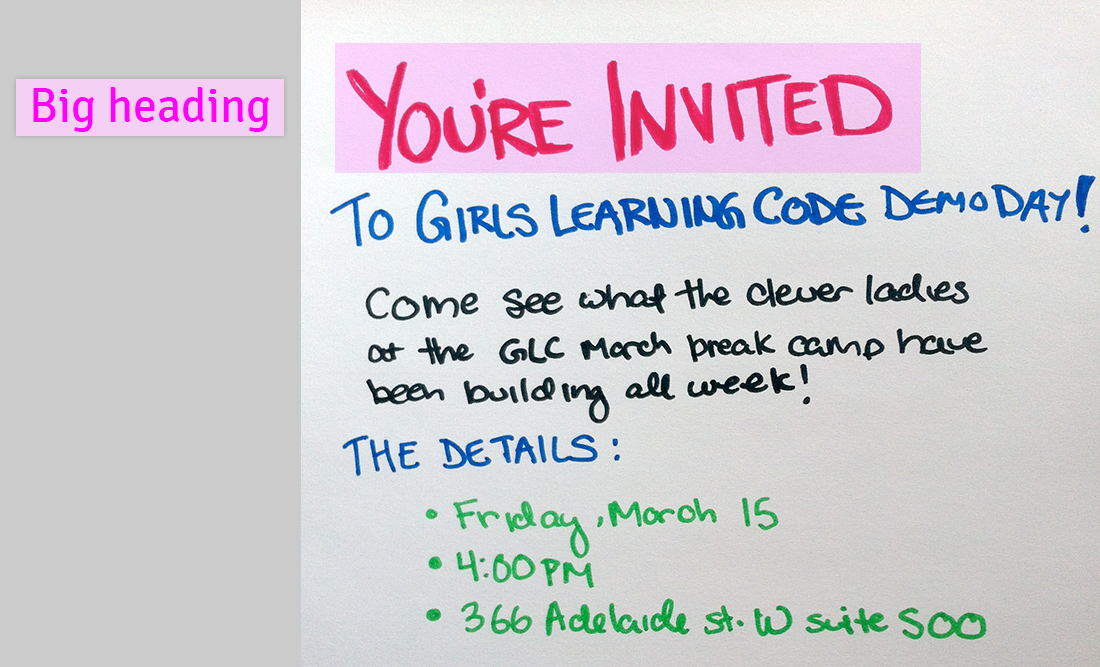 Big heading
YOU'RE INVITED
TO GIRLS LEARNING CODE DEMO DAY!
Come see what the clever ladies
at the GLC March break camp have
been building all week!
THE DETAILS:
• Friday, March 15
• 4:00 PM
• 366 Adelaide st. W suite 500